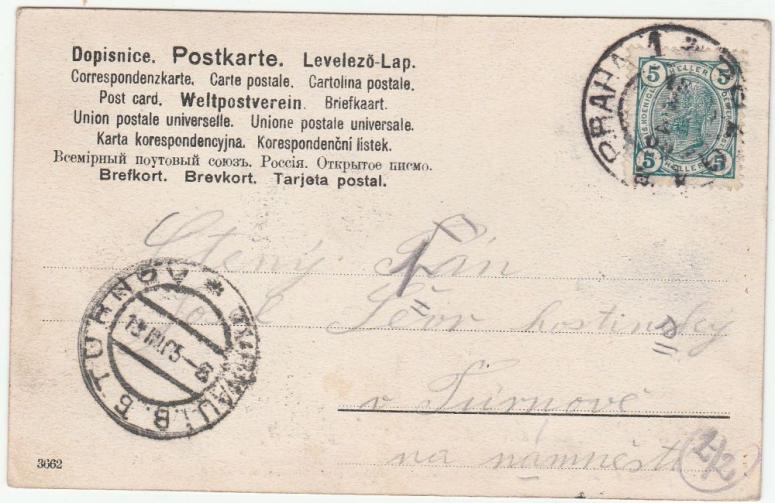 Dopisnice. Postkarte. Levelező-Lap.
Correspondenzkarte. Carte postale. Cartolina postale.
Post card. Weltpostverein. Briefkaart.
Union postale universelle. Unione postale universale.
Karta korespondencyjna. Korespondenční lístek.
Всемірный поутовый союзъ. Россія. Открытое писмо.
Brefkort. Brevkort. Tarjeta postal.
PRAHA 1
5 HELLER 5
5 HELLER 5
Ctený Pán
Josef hostinský
v Turnově
na náměstí
TURNOV * TURNAU
3662